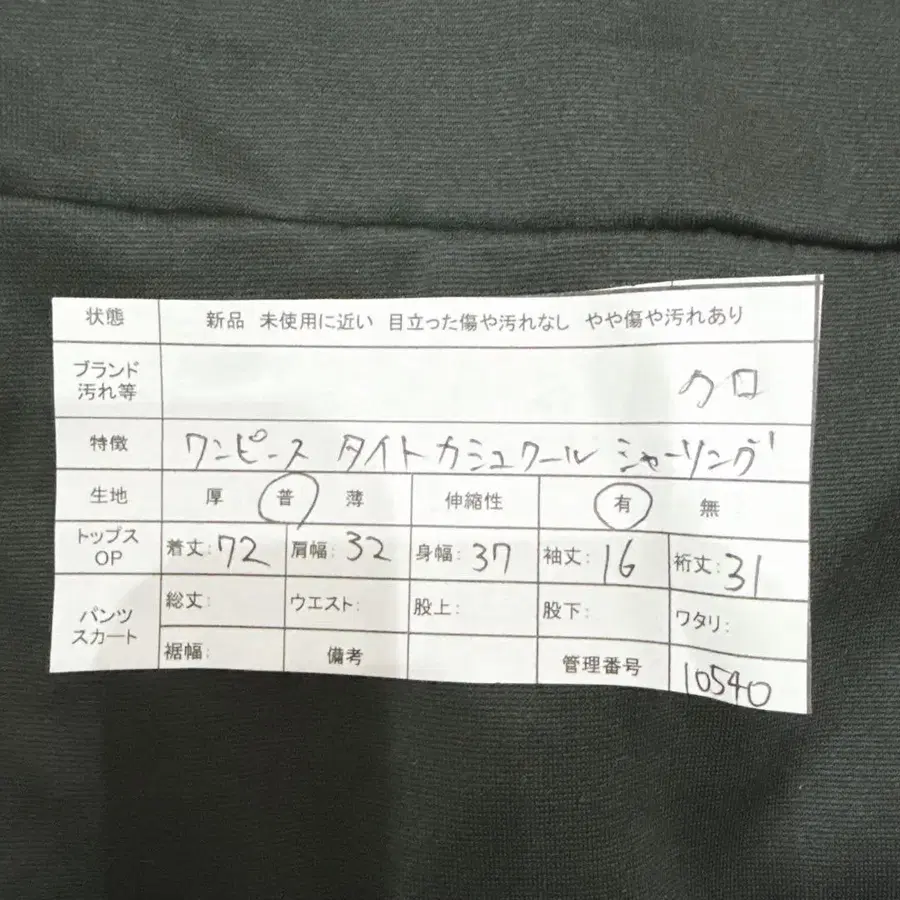 状態 新品 未使用に近い 目立った傷や汚れなし やや傷や汚れあり
ブランド
汚れ等 クロ
特徴 ワンピース タイト カシュクール シャーリング
生地 厚 普 薄 伸縮性 有 無
トップス
OP 着丈:72 肩幅:32 身幅:37 袖丈:16 裄丈:31
パンツ
スカート 総丈: ウエスト: 股上: 股下: ワタリ:
裾幅: 備考 管理番号 10540